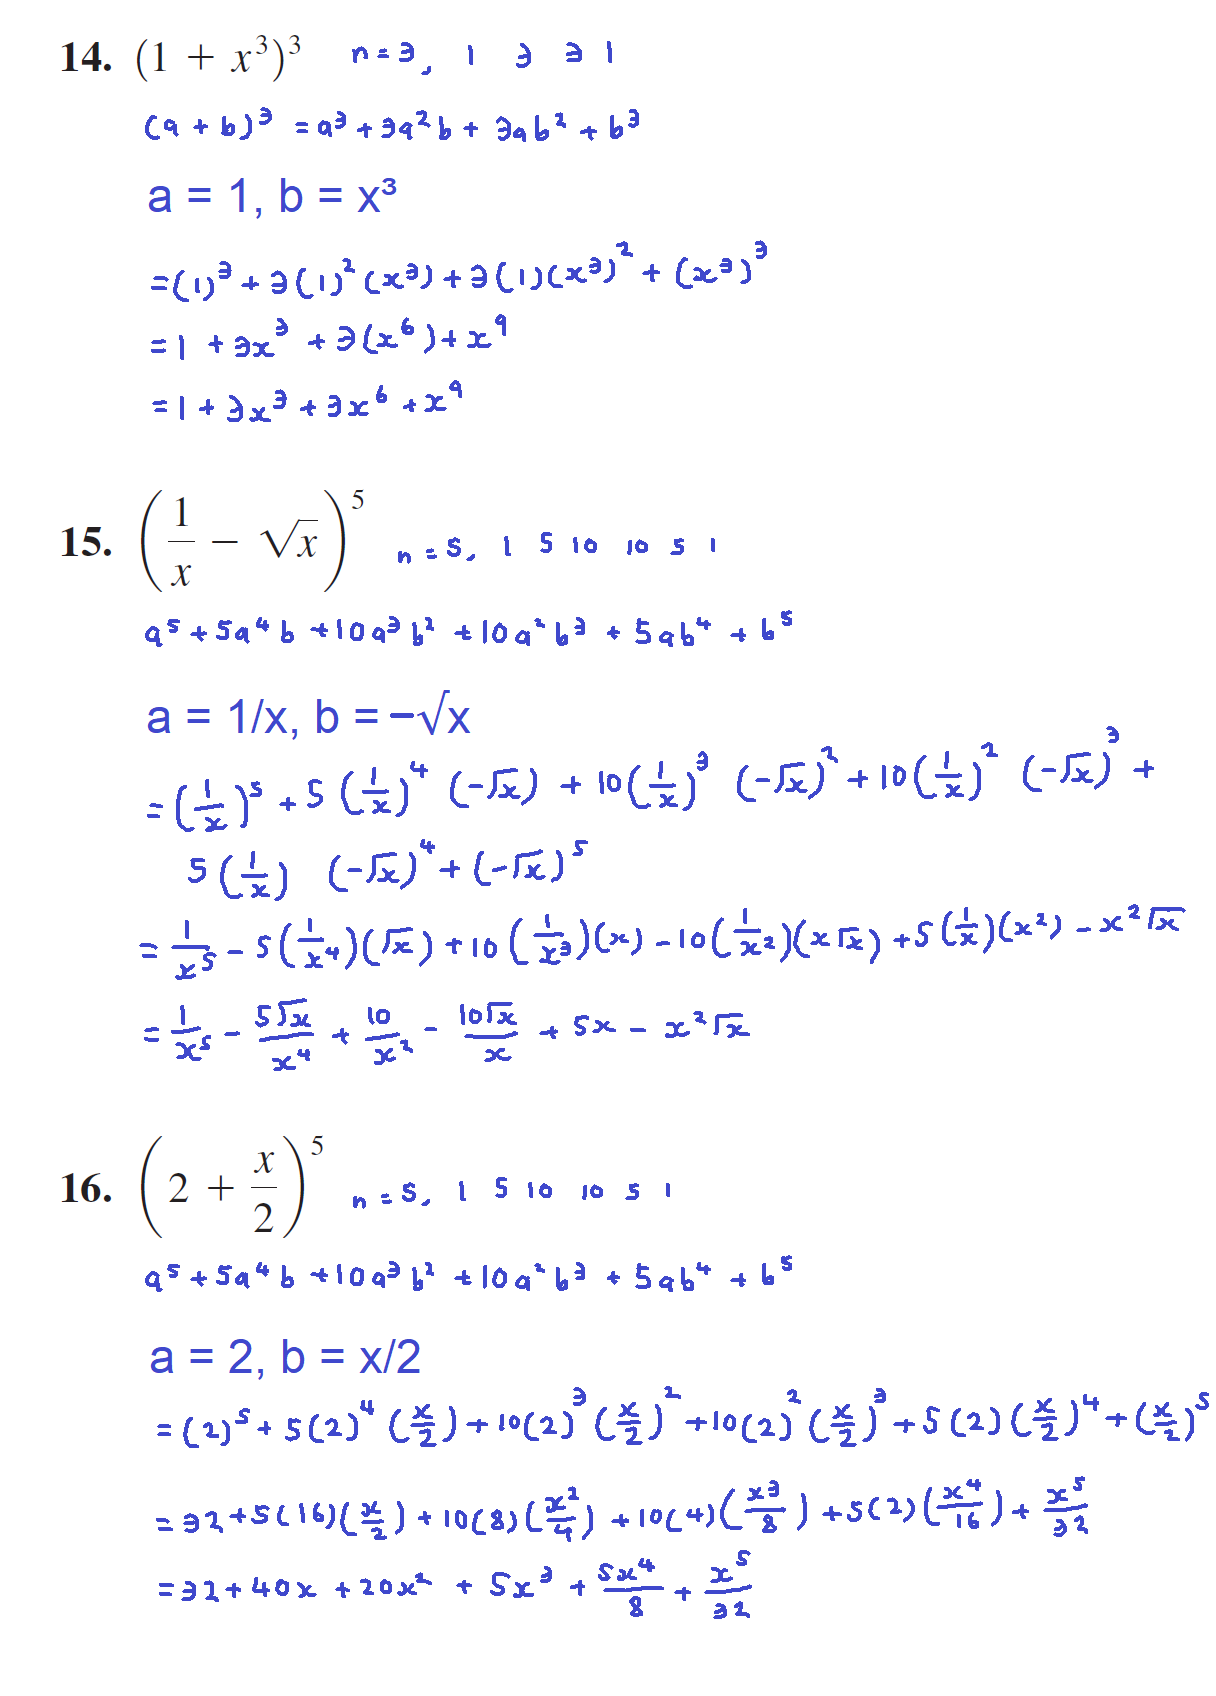 14. (1 + x³)³ n = 3, 1 3 3 1
(a + b)³ = a³ + 3a²b + 3ab² + b³
a = 1, b = x³
= (1)³ + 3(1)²(x³) + 3(1)(x³)² + (x³)³
= 1 + 3x³ + 3(x⁶) + x⁹
= 1 + 3x³ + 3x⁶ + x⁹
15. (1/x − √x)⁵ n = 5, 1 5 10 10 5 1
a⁵ + 5a⁴b + 10a³b² + 10a²b³ + 5ab⁴ + b⁵
a = 1/x, b = −√x
= (1/x)⁵ + 5(1/x)⁴ (−√x) + 10(1/x)³ (−√x)² + 10(1/x)² (−√x)³ +
5(1/x) (−√x)⁴ + (−√x)⁵
= 1/x⁵ − 5(1/x⁴)(√x) + 10(1/x³)(x) − 10(1/x²)(x√x) + 5(1/x)(x²) − x²√x
= 1/x⁵ − 5√x/x⁴ + 10/x² − 10√x/x + 5x − x²√x
16. (2 + x/2)⁵ n = 5, 1 5 10 10 5 1
a⁵ + 5a⁴b + 10a³b² + 10a²b³ + 5ab⁴ + b⁵
a = 2, b = x/2
= (2)⁵ + 5(2)⁴(x/2) + 10(2)³(x/2)² + 10(2)²(x/2)³ + 5(2)(x/2)⁴ + (x/2)⁵
= 32 + 5(16)(x/2) + 10(8)(x²/4) + 10(4)(x³/8) + 5(2)(x⁴/16) + x⁵/32
= 32 + 40x + 20x² + 5x³ + 5x⁴/8 + x⁵/32